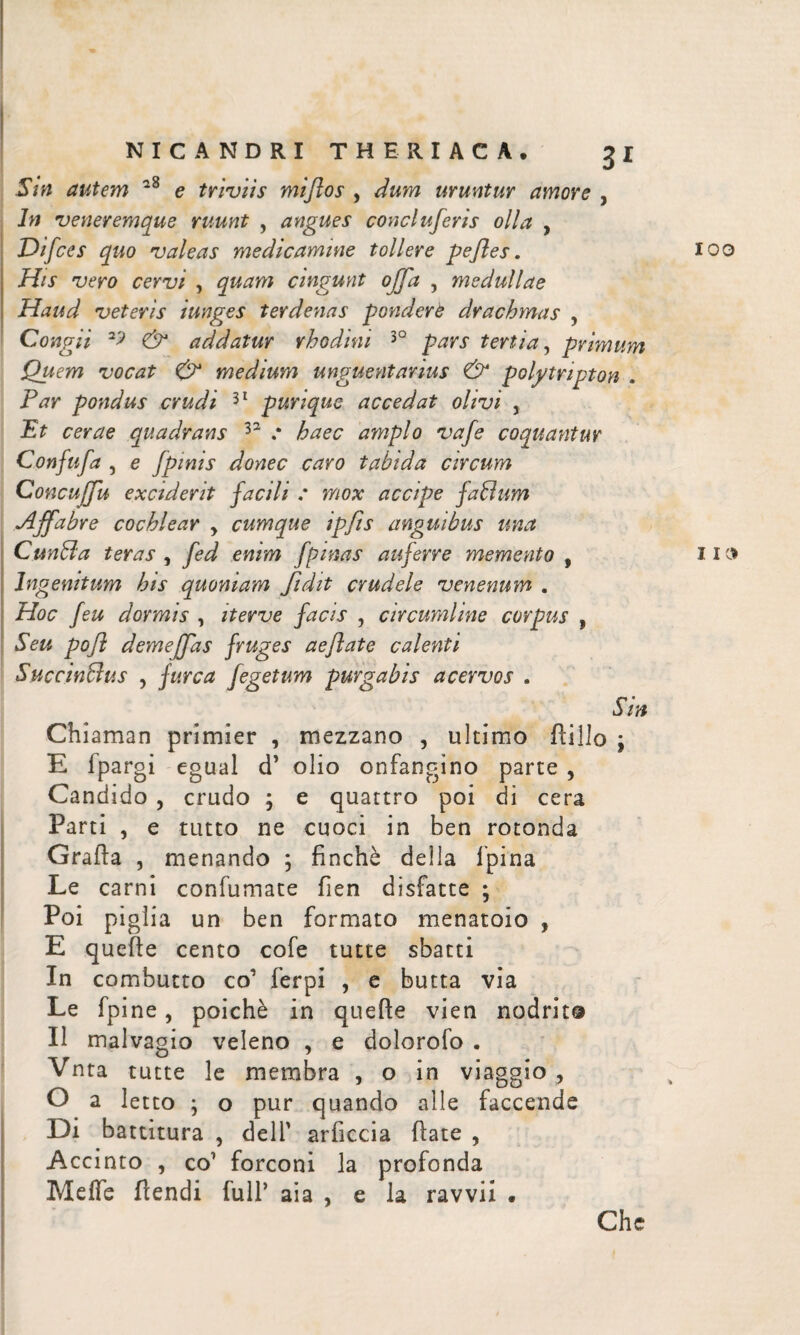 NICANDRI THERIACA. 31
Sin autem ²⁸ e triviis miſtos , dum uruntur amore ,
In veneremque ruunt , angues concluſeris olla ,
Diſces quo valeas medicamine tollere peſtes. 100
His vero cervi , quam cingunt oſſa , medullae
Haud veteris iunges terdenas pondere drachmas ,
Congii ²⁹ & addatur rhodini ³⁰ pars tertia, primum
Quem vocat & medium unguentarius & polytripton .
Par pondus crudi ³¹ purique accedat olivi ,
Et cerae quadrans ³² : haec amplo vaſe coquantur
Confuſa , e ſpinis donec caro tabida circum
Concuſſu exciderit facili : mox accipe factum
Affabre cochlear , cumque ipſis anguibus una
Cuncta teras , ſed enim ſpinas auferre memento , 110
Ingenitum his quoniam fidit crudele venenum .
Hoc ſeu dormis , iterve facis , circumline corpus ,
Seu poſt demeſſas fruges aeſtate calenti
Succinctus , furca ſegetum purgabis acervos .
Sin
Chiaman primier , mezzano , ultimo ſtillo ;
E ſpargi egual d' olio onfangino parte ,
Candido , crudo ; e quattro poi di cera
Parti , e tutto ne cuoci in ben rotonda
Graſta , menando ; finchè della ſpina
Le carni conſumate ſien disfatte ;
Poi piglia un ben formato menatoio ,
E queſte cento coſe tutte sbatti
In combutto co' ſerpi , e butta via
Le ſpine , poichè in queſte vien nodrito
Il malvagio veleno , e doloroſo .
Vnta tutte le membra , o in viaggio ,
O a letto ; o pur quando alle faccende
Di battitura , dell' arſiccia ſtate ,
Accinto , co' forconi la profonda
Meſſe ſtendi ſull' aia , e la ravvii .
Che